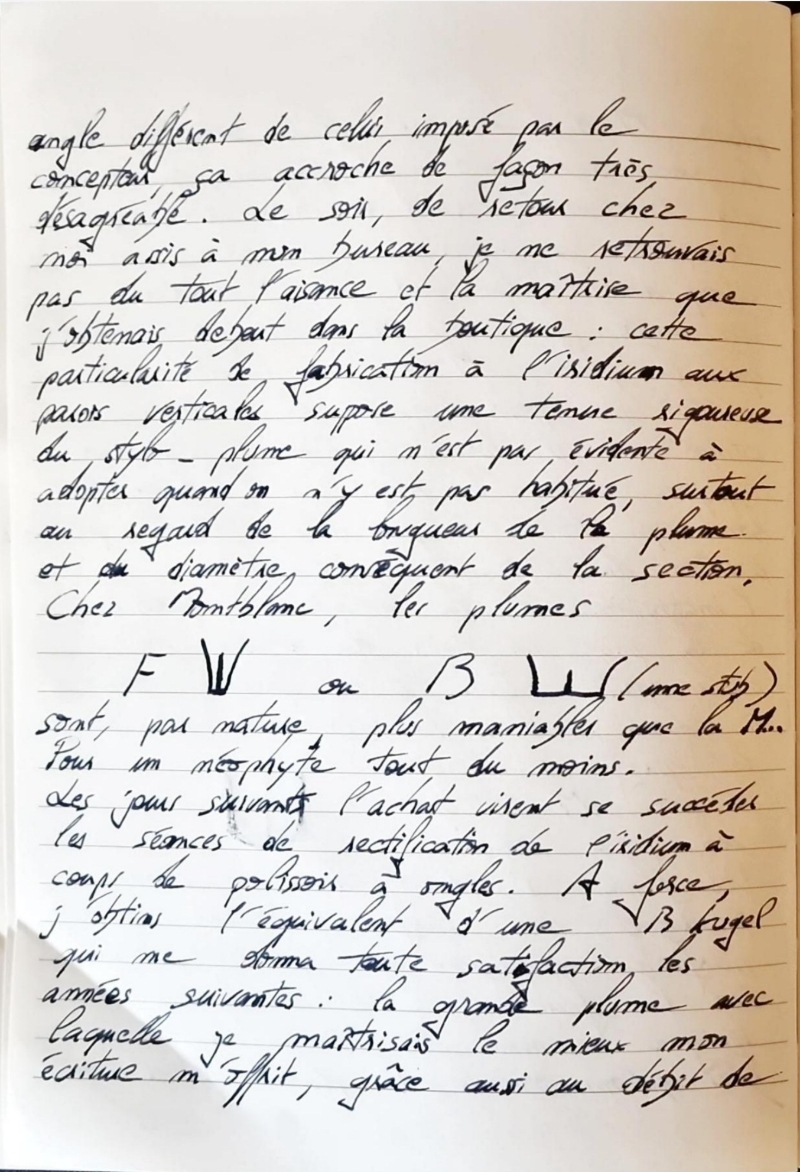 angle différent de celui imposé par le
concepteur, ça accroche de façon très
désagréable. Le soir, de retour chez
moi assis à mon bureau, je ne retrouvais
pas du tout l'aisance et la maîtrise que
j'obtenais debout dans la boutique : cette
particularité de fabrication à l'iridium aux
parois verticales suppose une tenue rigoureuse
du stylo-plume qui n'est pas évidente à
adopter quand on n'y est pas habitué, surtout
au regard de la longueur de la plume
et du diamètre conséquent de la section.
Chez Montblanc, les plumes
F ou B (une stub)
sont, par nature, plus maniables que la M..
Pour un néophyte tout du moins.
Les jours suivants l'achat virent se succéder
les séances de rectification de l'iridium à
coups de polissoir à ongles. A force,
j'obtins l'équivalent d'une B kugel
qui me donna toute satisfaction les
années suivantes : la grande plume avec
laquelle je maîtrisais le mieux mon
écriture m'offrit, grâce aussi au débit de